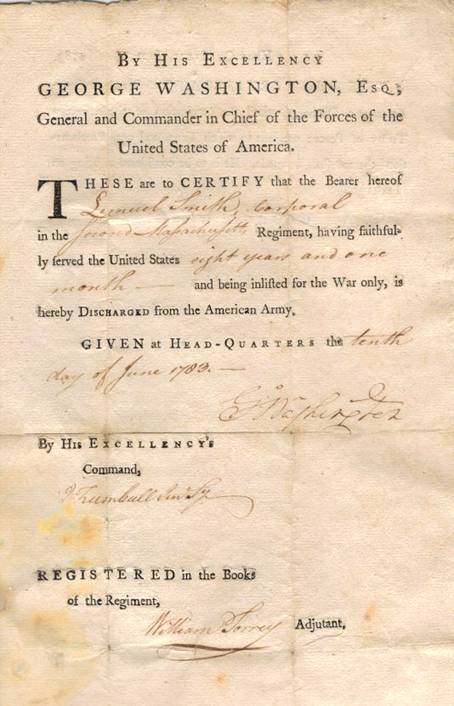 By His Excellency
GEORGE WASHINGTON, Esq;
General and Commander in Chief of the Forces of the
United States of America.
THESE are to CERTIFY that the Bearer hereof
Lemuel Smith, Corporal
in the Second Massachusetts Regiment, having faithful-
ly served the United States eight years and one
month — and being inlisted for the War only, is
hereby Discharged from the American Army.
GIVEN at Head-Quarters the tenth
day of June 1783. —
Go Washington
By His Excellency's
Command,
J Trumbull Jun Sy
REGISTERED in the Books
of the Regiment,
William Torrey Adjutant,